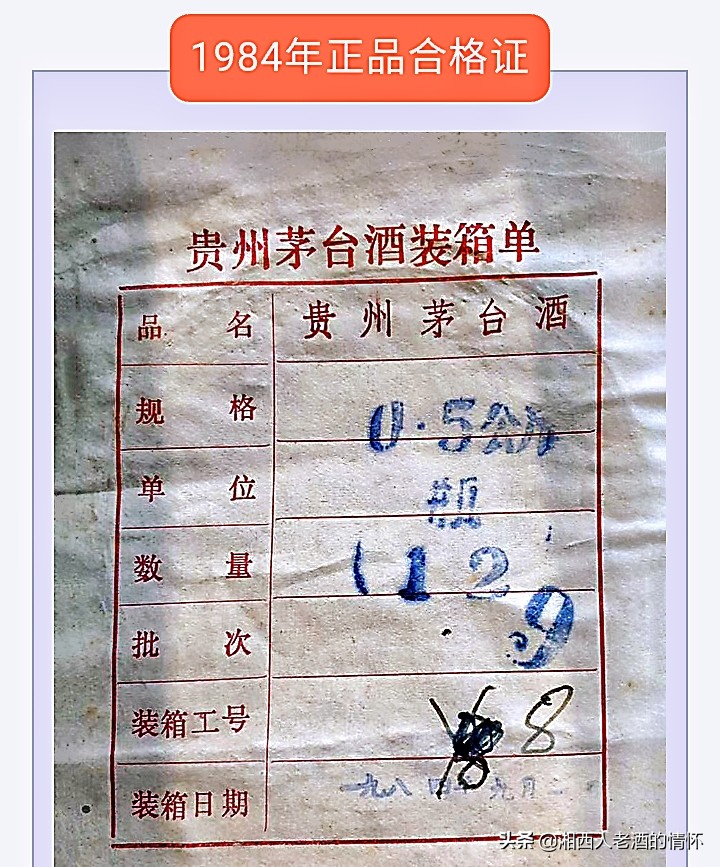 1984年正品合格证
贵州茅台酒装箱单
品名 贵州茅台酒
规格 0.5公斤
单位 瓶
数量 12
批次 9
装箱工号 8
装箱日期 一九八四年九月二
头条 @湘西人老酒的情怀